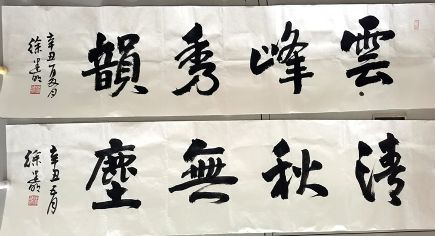 雲峰秀韻
辛丑夏月
徐
清秋無塵
辛丑夏月
徐